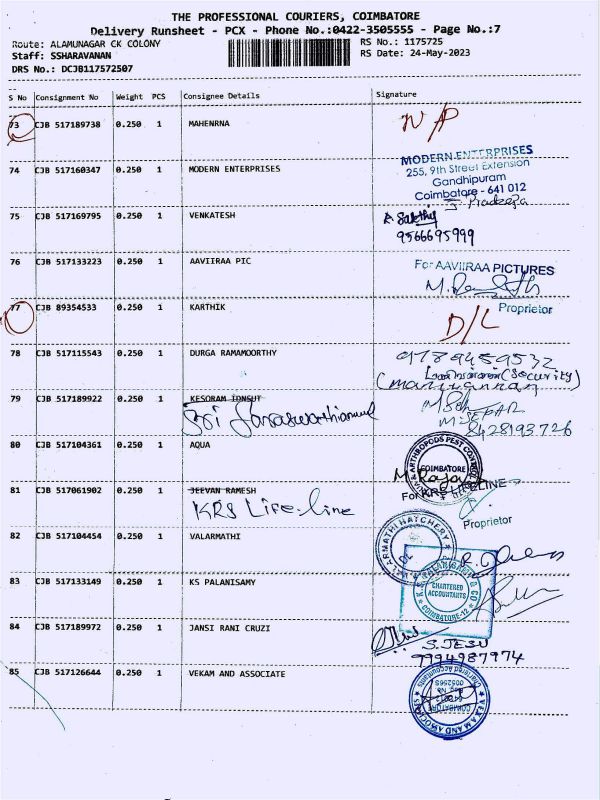 THE PROFESSIONAL COURIERS, COIMBATORE
Delivery Runsheet - PCX - Phone No.:0422-3505555 - Page No.:7
Route: ALAMUNAGAR CK COLONY
RS No.: 1175725
Staff: SSHARAVANAN
RS Date: 24-May-2023
DRS No.: DCJB117572507
S No Consignment No Weight PCS Consignee Details Signature
73 CJB 517189738 0.250 1 MAHENRNA
N/P
74 CJB 517160347 0.250 1 MODERN ENTERPRISES
MODERN ENTERPRISES
255, 9th Street Extension
Gandhipuram
Coimbatore - 641 012
J. Pradeepa
75 CJB 517169795 0.250 1 VENKATESH
9566695999
76 CJB 517133223 0.250 1 AAVIIRAA PIC
For AAVIIRAA PICTURES
Proprietor
77 CJB 89354533 0.250 1 KARTHIK
D/L
78 CJB 517115543 0.250 1 DURGA RAMAMOORTHY
9789459532
(Security)
79 CJB 517189922 0.250 1 KESORAM IONSUT
Sri
M. SEKAR
8428193726
80 CJB 517104361 0.250 1 AQUA
ARTHROPODS PEST CONTROL
COIMBATORE
M. Raja
81 CJB 517061902 0.250 1 JEEVAN RAMESH
KRS Life-line
For KRS LIFELINE
Proprietor
82 CJB 517104454 0.250 1 VALARMATHI
VALARMATHI HATCHERY
83 CJB 517133149 0.250 1 KS PALANISAMY
CHARTERED
ACCOUNTANTS
COIMBATORE-12
84 CJB 517189972 0.250 1 JANSI RANI CRUZI
S. JESU
9994987974
85 CJB 517126644 0.250 1 VEKAM AND ASSOCIATE
VEKAM AND ASSOCIATES
Chartered Accountants
COIMBATORE